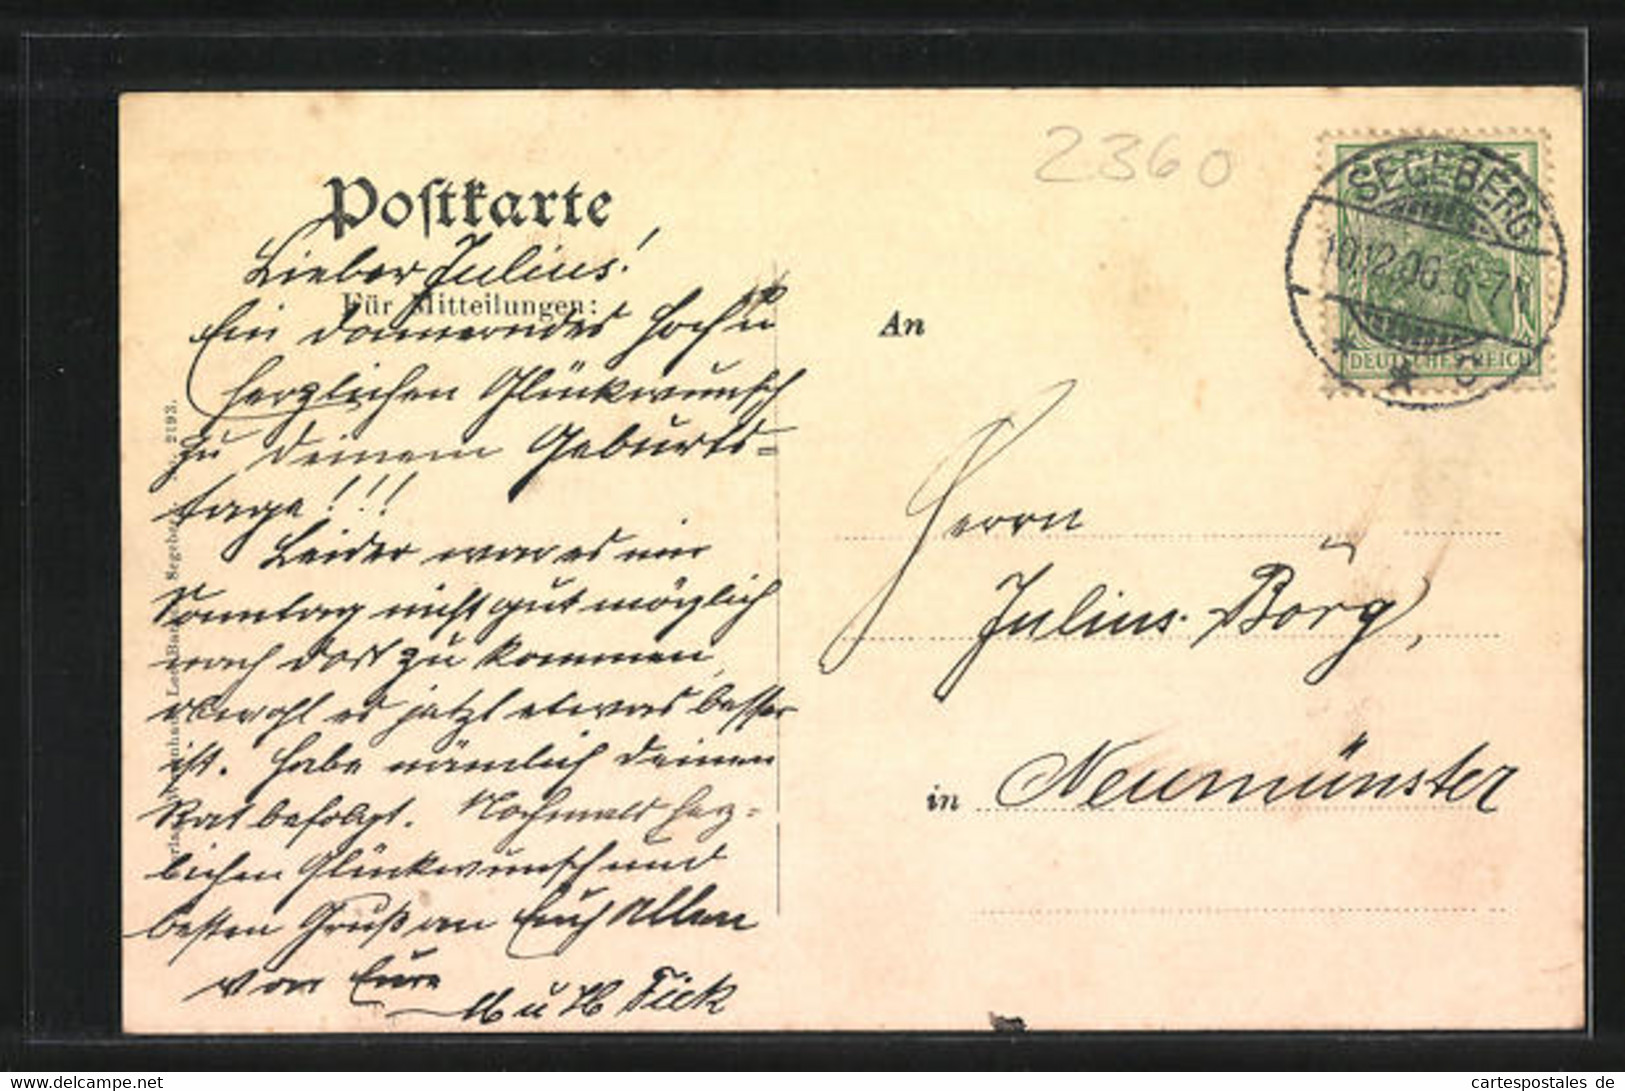 2360
SEGEBERG
10.12.06. 6-7N
DEUTSCHES REICH
Postkarte
Lieber Julius!
Für Mitteilungen:
Ein donnerndes Hoch u
herzlichen Glückwunsch
zu Deinem Geburts=
tage!!!
Leider war es mir
Sonntag nicht gut möglich
nach dort zu kommen,
obwohl es jetzt etwas besser
ist. Habe nämlich Deinen
Rat befolgt. Nochmals herz=
lichen Glückwunsch und
besten Gruß an Euch Allen
von Eure
u Fick
An
Herrn
Julius Börg,
in Neumünster
Segeberg. 2193.
cartespostales de